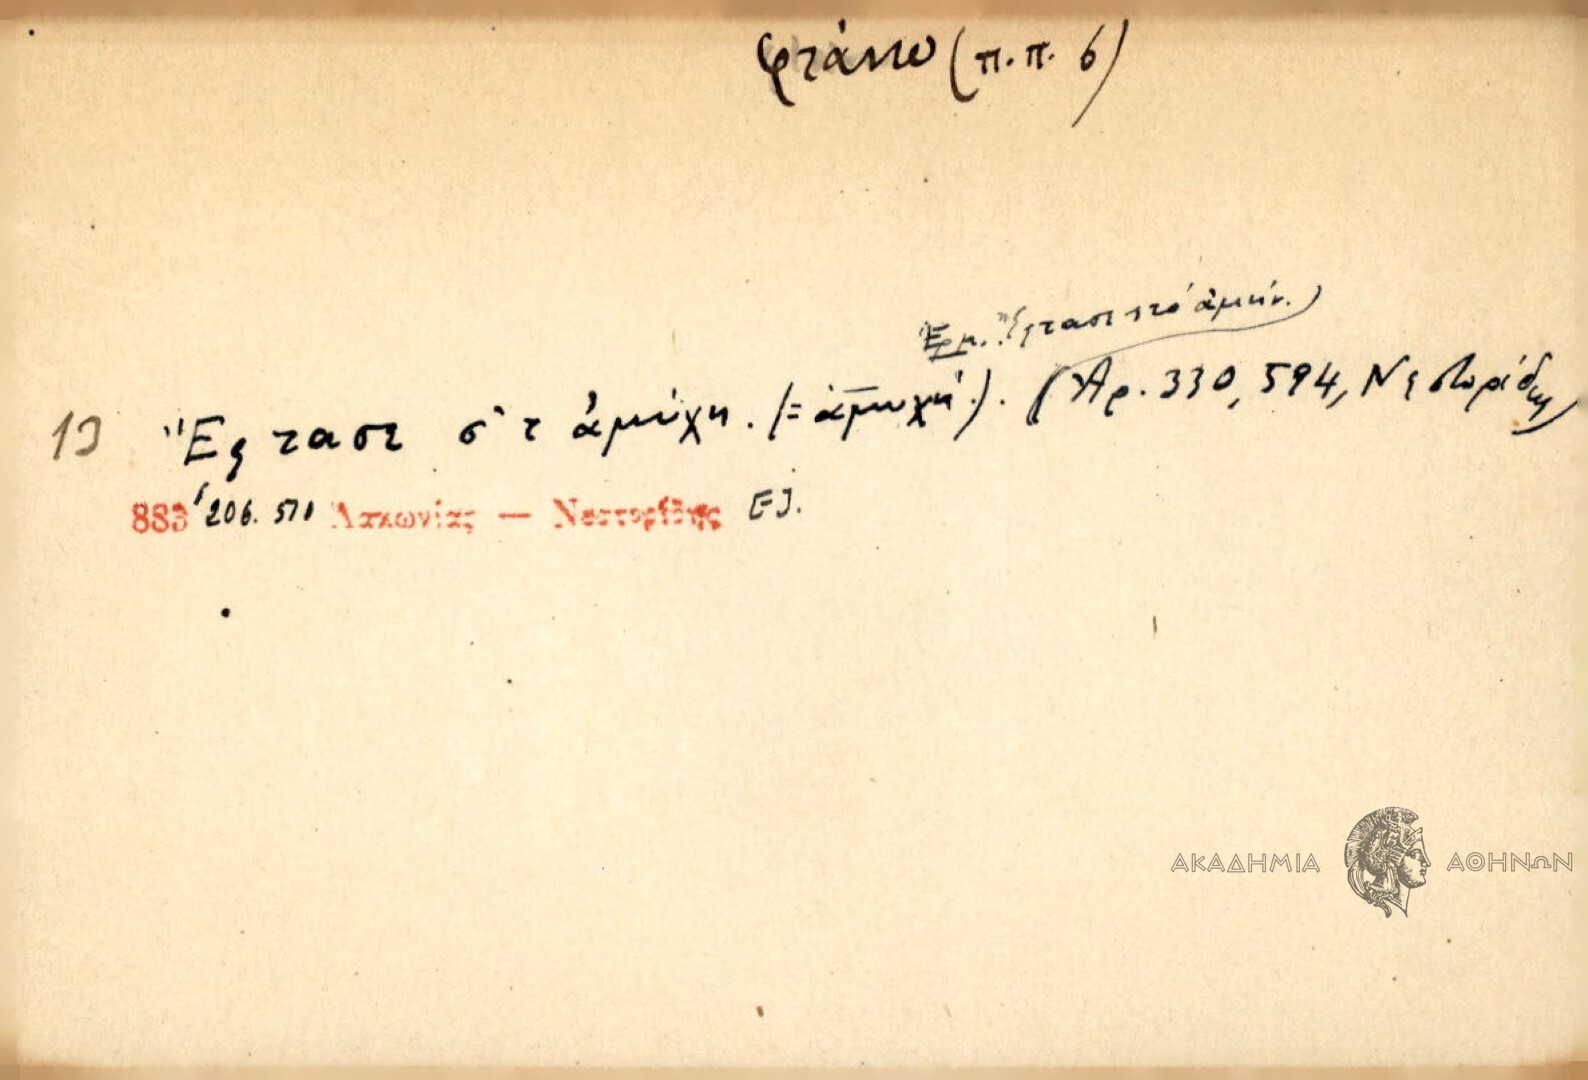 φτάνω (π.π. 6)
Ἑρμ. Ἔςτασε στὸ ἀμήν.)
13 Ἔςτασε σ' τ ἀμύχη. (= ἀμυχή). (Ἀρ. 330, 594, Νεστορίδης
883 206. 571 Λακωνίας — Νεστορίδης
ΑΚΑΔΗΜΙΑ ΑΘΗΝΩΝ